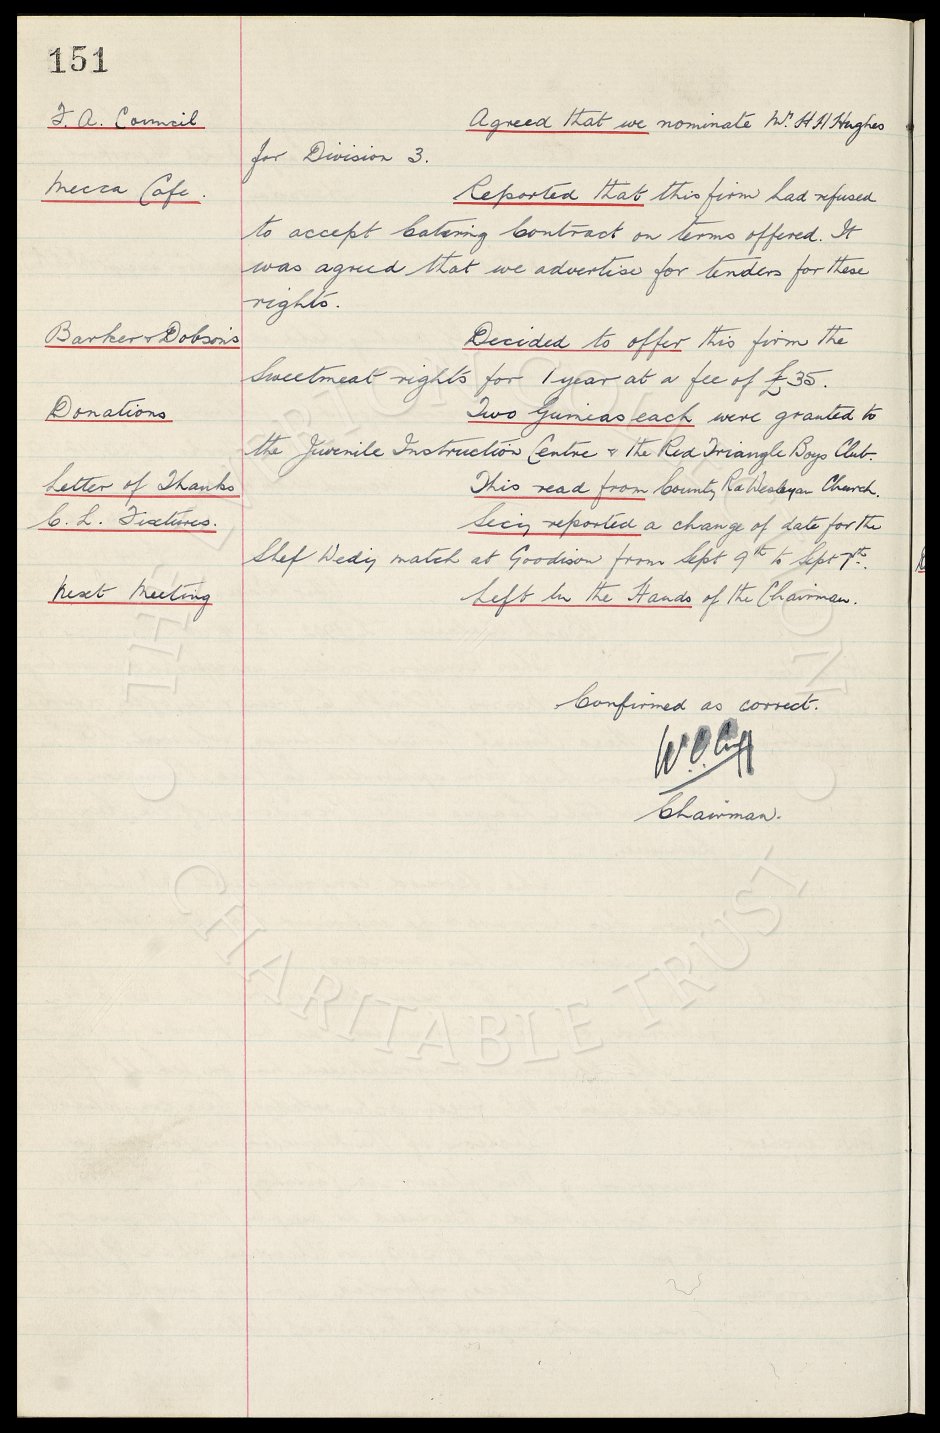 151
F. A. Council Agreed that we nominate Mr. H H Hughes
for Division 3.
Mecca Cafe. Reported that this firm had refused
to accept Catering Contract on terms offered. It
was agreed that we advertise for tenders for these
rights.
Barker & Dobson's Decided to offer this firm the
Sweetmeat rights for 1 year at a fee of £35.
Donations Two Guineas each were granted to
the Juvenile Instruction Centre & the Red Triangle Boys Club.
Letter of Thanks This read from County Rd Wesleyan Church.
C. L. Fixtures. Secy reported a change of date for the
Shef Wedy match at Goodison from Sept 9th to Sept 7th.
Next Meeting Left in the Hands of the Chairman.
Confirmed as correct.
W. C. Cuff
Chairman.
THE EVERTON COLLECTION
CHARITABLE TRUST